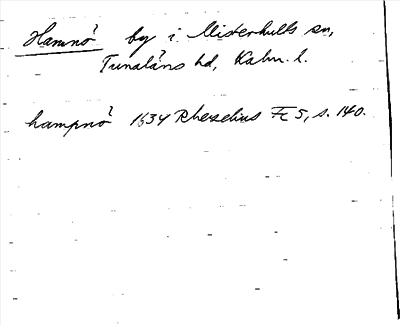 Hamnö by i Misterhults sn,
Tunaläns hd, Kalm. l.
hampnö 1634 Rhezelius Fc 5, s. 140.